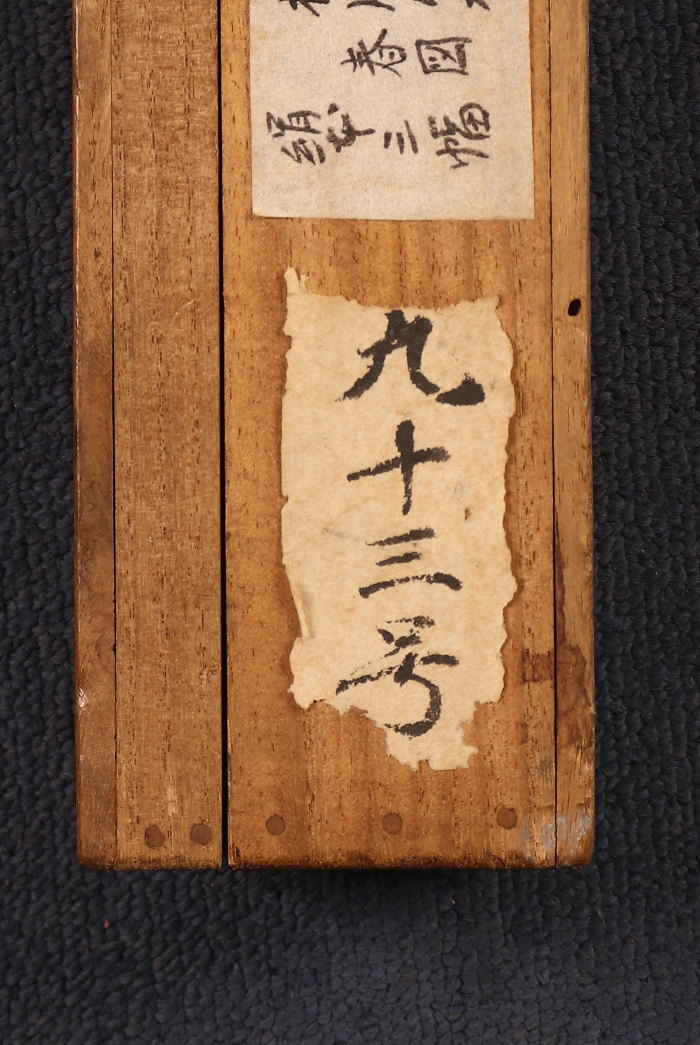 図
春
絹本三幅
九十三号